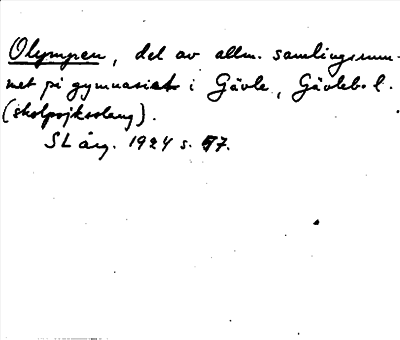 Olympen, del av allm. samlingsrum-
met på gymnasiet i Gävle, Gävleb. l.
(skolpojksslang).
SL årg. 1924 s. 97.